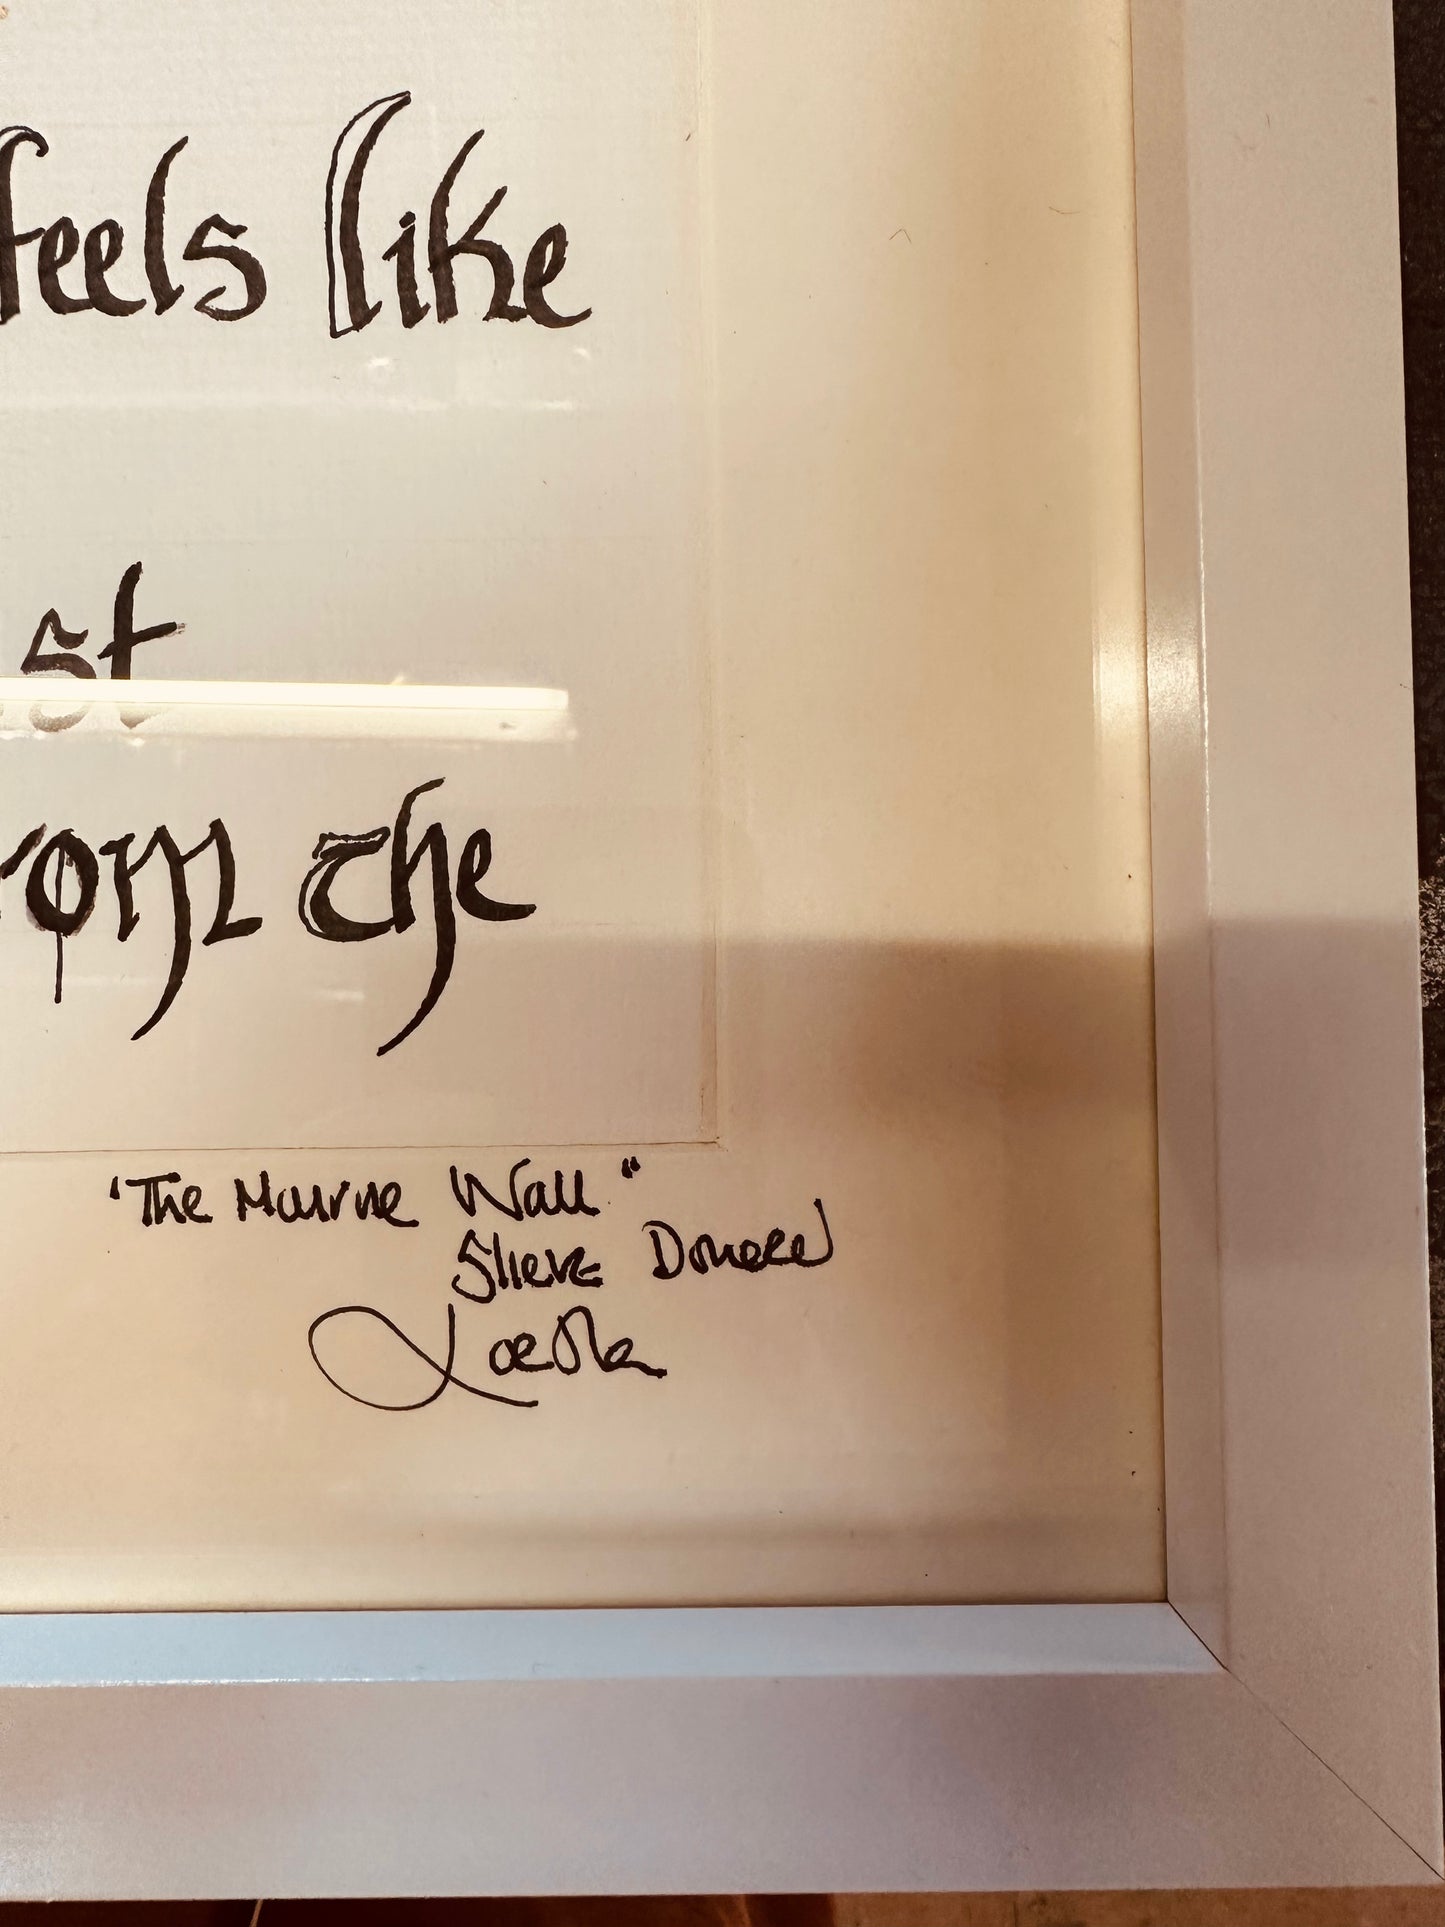 feels like
st
rom the
"The Mourne Wall"
Slieve Donard